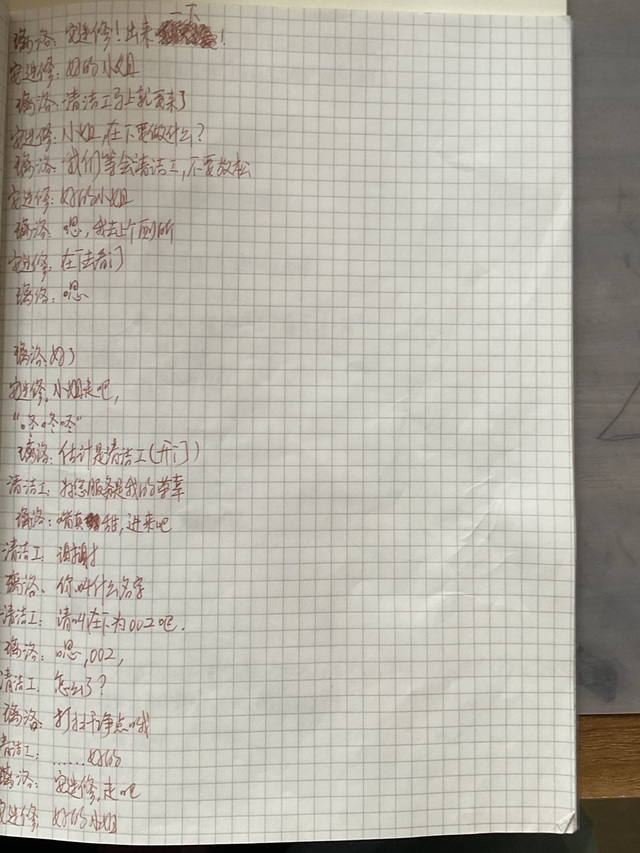 一下
璃洛：安迷修！出来！
安迷修：好的小姐
璃洛：清洁工马上就要来了
安迷修：小姐在下要做什么？
璃洛：我们等会清洁工，不要放松
安迷修：好的小姐
璃洛：嗯，我去上个厕所
安迷修：在下去看门
璃洛：嗯
璃洛：好了
安迷修：小姐走吧，
“咚咚咚”
璃洛：估计是清洁工（开门）
清洁工：为您服务是我的荣幸
璃洛：嘴真甜，进来吧
清洁工：谢谢
璃洛：你叫什么名字
清洁工：请叫在下为002吧.
璃洛：嗯，002，
清洁工：怎么了？
璃洛：打扫干净点哦
清洁工：……好的
璃洛：安迷修，走吧
安迷修：好的小姐